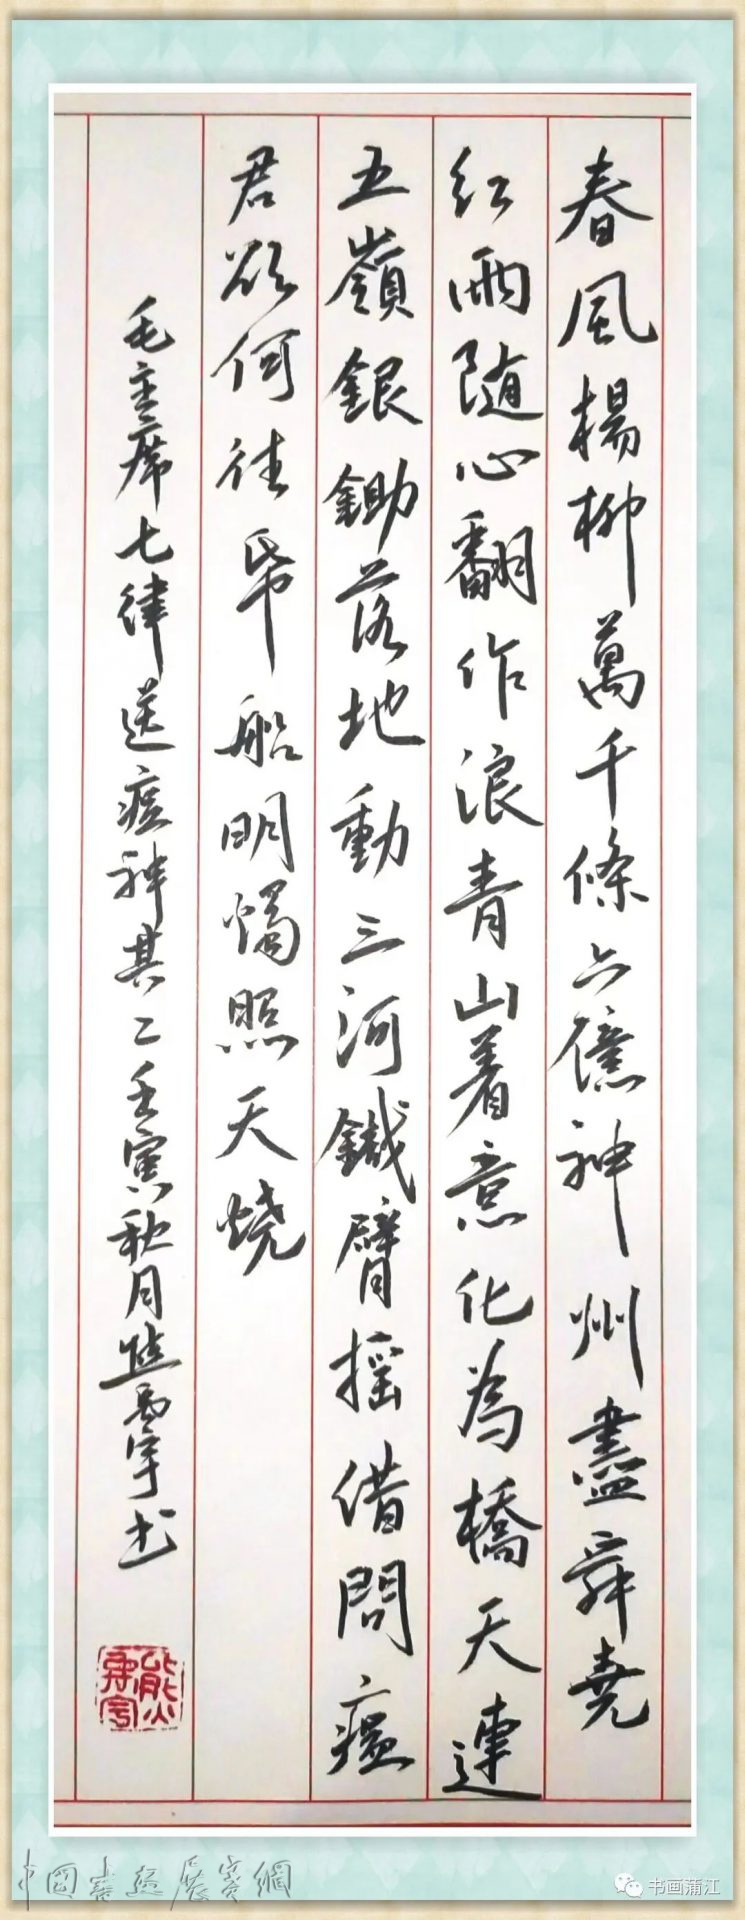 春風楊柳萬千條六億神州盡舜堯
红雨随心翻作浪青山着意化為橋天連
五嶺銀鋤落地動三河鐵臂摇借問瘟
君欲何往帋船明燭照天燒
毛主席七律送瘟神其二壬寅秋月熊书
中國書画展賽網
书画蒲江